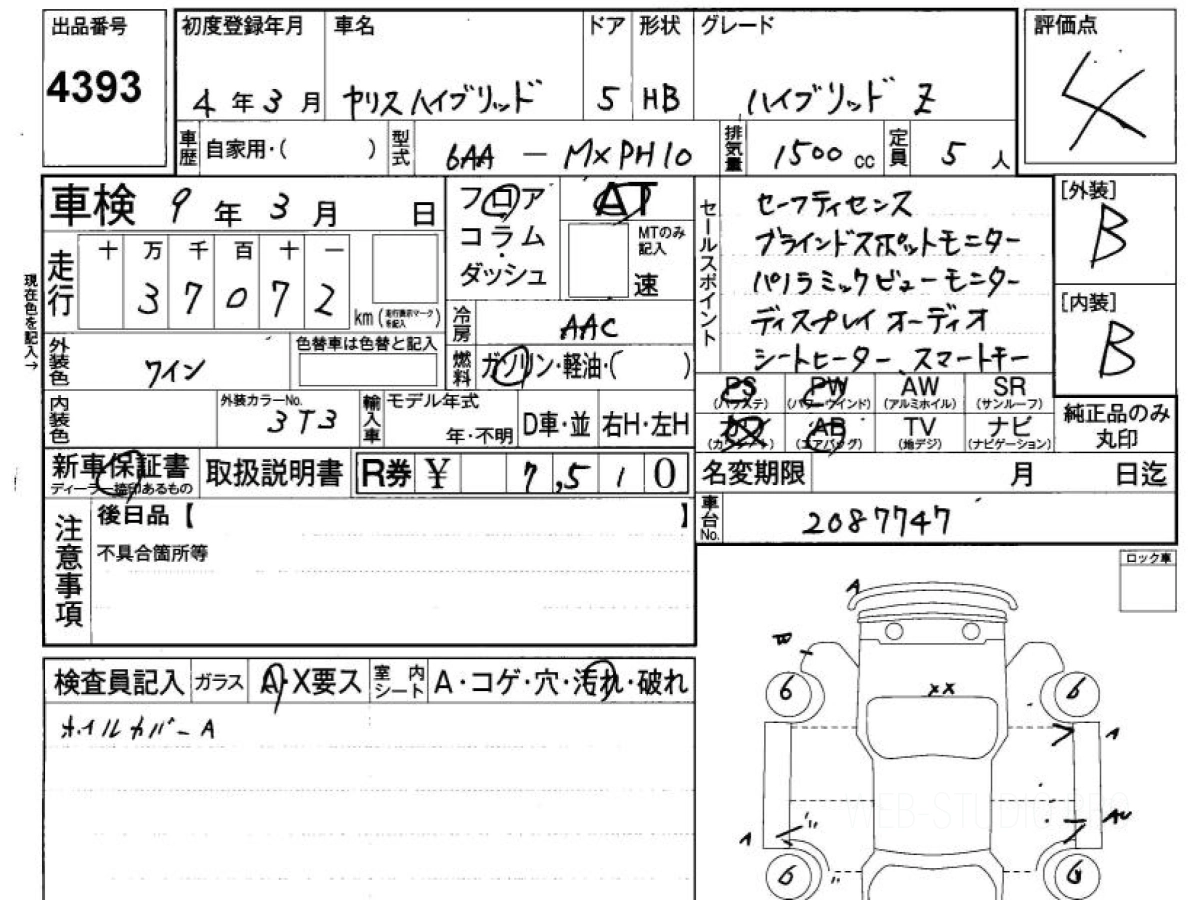 出品番号
4393
初度登録年月
4年3月
車名
ヤリスハイブリッド
ドア
5
形状
HB
グレード
ハイブリッド Z
評価点
4
車歴
自家用・( )
型式
6AA - MXPH10
排気量
1500cc
定員
5人
車検 9年3月 日
現在色を記入→
走行
十 万 千 百 十 一
3 7 0 7 2
km(走行表示マークを記入)
外装色
ワイン
色替車は色替と記入
内装色
外装カラーNo.
3T3
輸入車
モデル年式
年・不明
D車・並
右H・左H
フロア
コラム
ダッシュ
AT
MTのみ記入
速
冷房
AAC
燃料
ガソリン・軽油・( )
セールスポイント
セーフティセンス
ブラインドスポットモニター
パノラミックビューモニター
ディスプレイオーディオ
シートヒーター、スマートキー
[外装]
B
[内装]
B
PS
(パワステ)
PW
(パワーウインド)
AW
(アルミホイル)
SR
(サンルーフ)
カワ
(カワシート)
AB
(エアバッグ)
TV
(地デジ)
ナビ
(ナビゲーション)
純正品のみ
丸印
新車保証書
ディーラー捺印あるもの
取扱説明書
R券 ¥ 7,510
名変期限 月 日迄
車台No.
2087747
注意事項
後日品【 】
不具合箇所等
ロック車
検査員記入
ガラス
A・X要ス
室内シート
A・コゲ・穴・汚れ・破れ
ホイルカバーA
A
XX
6
6
A
AU
A
6
6
WEB-STUDIO PRO